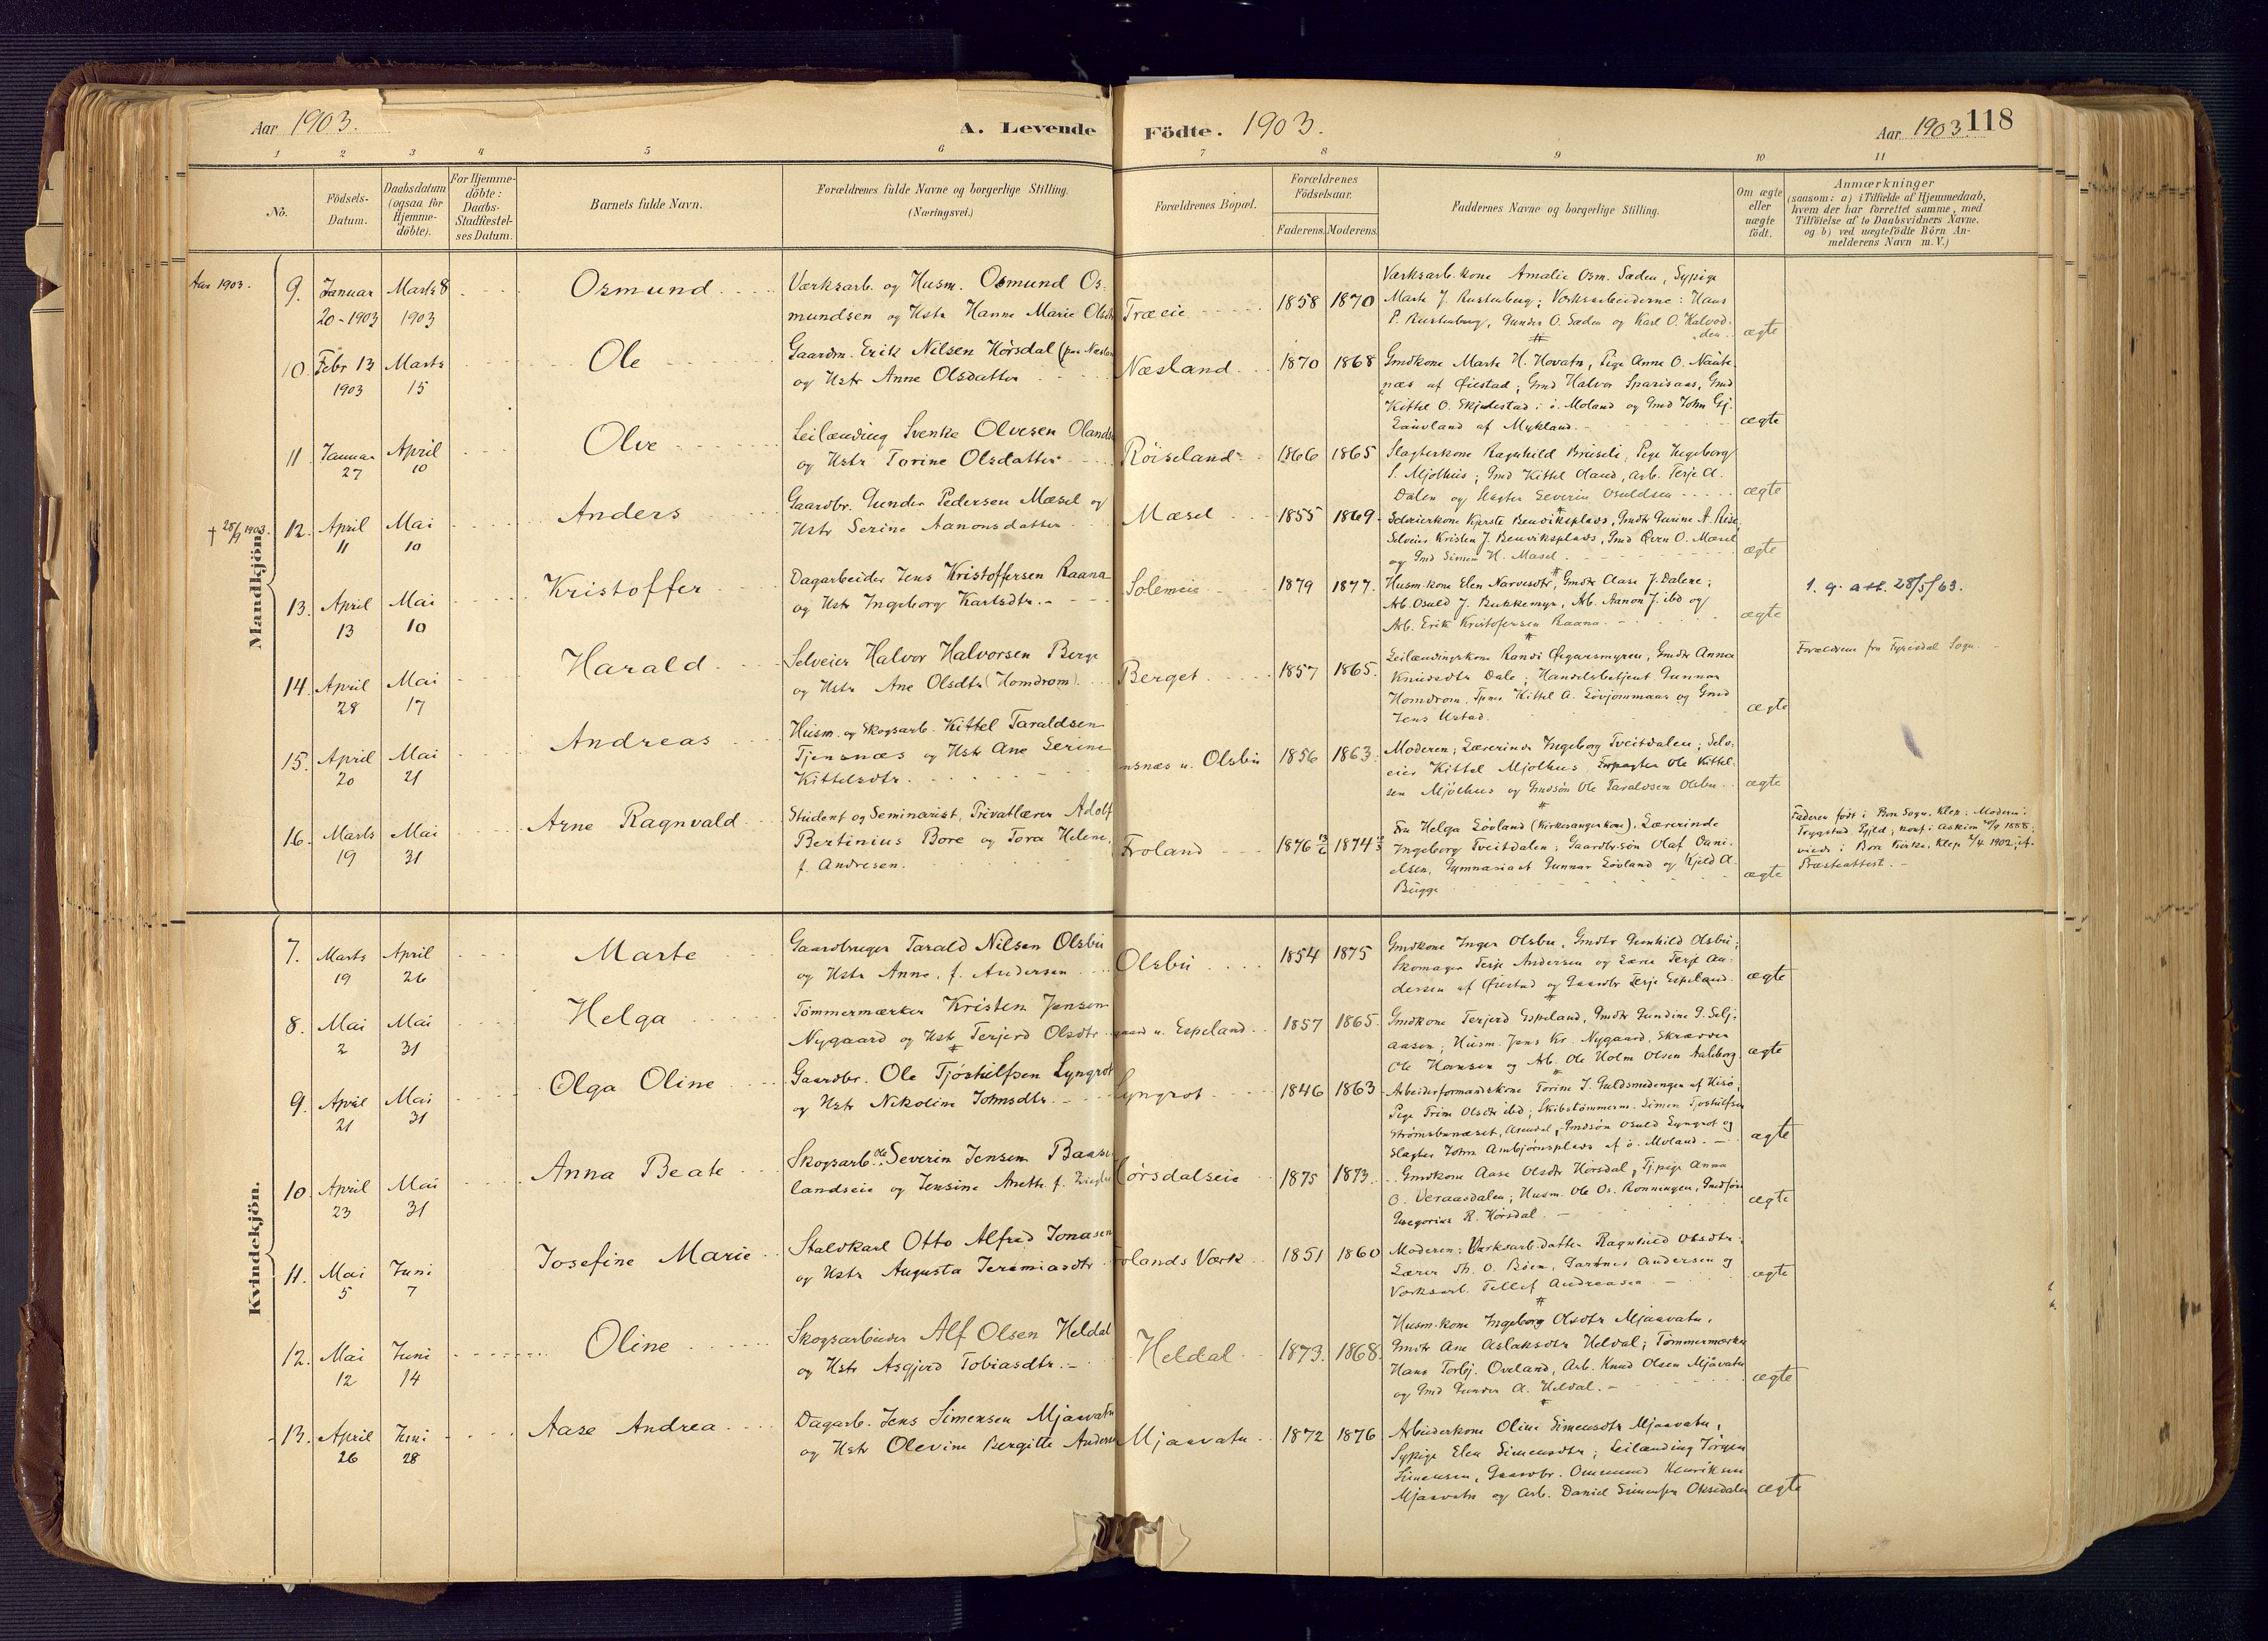 Aar 1903.
A. Levende Födte. 1903.
Aar 1903. 118
1 2 3 4 5 6 7 8 9 10 11
No.
Födsels-Datum.
Daabsdatum (ogsaa for Hjemme-döbte).
For Hjemme-döbte: Daabs-Stadfæstel-ses Datum.
Barnets fulde Navn.
Forældrenes fulde Navne og borgerlige Stilling.
(Næringsvei.)
Forældrenes Bopæl.
Forældrenes Födselsaar.
Faderens. Moderens.
Faddernes Navne og borgerlige Stilling.
Om ægte eller uægte födt.
Anmærkninger
(saasom: a) i Tilfælde af Hjemmedaab,
hvem der har forrettet samme, med
Tilföielse af to Daabsvidners Navne.
og b) ved uægtefödte Börn An-
melderens Navn m. V.)
Aar 1903.
Mandkjön.
9. Januar 20-1903 Marts 8 1903
Osmund
Værksarb. og Husm. Osmund Os-
mundsen og Hstr Hanne Marie Olsdtr
Træeie 1858 1870
Værksarb.kone Amalie Osm. Sæden, Sypige
Marte J. Rustenberg; Værksarbeiderne: Hans
P. Rustenberg, Gunder O. Sæden og Karl O. Kalvod-
den
ægte
10. Febr 13 1903 Marts 15
Ole
Gaardm. Erik Nilsen Hörsdal
og Hstr Anne Olsdatter
Næsland 1870 1868
Gmdkone Marte H. Hovatn, Pige Anne O. Nautenæs
af Öiestad; Gmd Halvor Sparsaas, Gmd
Kittel O. Skjelestad i ö. Moland og Gmd John Gj.
af Mykland.
ægte
11 Januar 27 April 10
Olve
Leilænding Svenke Olvesen Olands
og Hstr Torine Olsdatter
Röiseland 1866 1865
Slagterkone Ragnhild Briseli, Pige Ingeborg
S. Mjölhus; Gmd Kittel Oland, Arb. Terje A.
Dalen og Slagter Severin Osuldsen
ægte
† 28/9 1903. 12. April 11 Mai 10
Anders
Gaardbr. Gunder Pedersen Mæsel og
Hstr Serine Aanonsdatter
Mæsel 1855 1869
Selveierkone Kjerste Benviksplads, Gmdtr Gurine A. Rise,
Selveier Kristen J. Benviksplads, Gmd Even O. Mæsel
og Gmd Simen H. Mæsel.
ægte
13. April 13 Mai 10
Kristoffer
Dagarbeider Jens Kristoffersen Raana
og Hstr Ingeborg Karlsdtr.
Solemeie 1879 1877.
Husm.kone Elen Narvesdtr, Gmdtr Aase J. Dalene;
Arb. Osuld J. Bukkemyr, Arb. Aanon J. ibd og
Arb. Erik Kristofersen Raana.
ægte
1. g. att. 28/5/63.
14. April 28 Mai 17
Harald
Selveier Halvor Halvorsen Berge
og Hstr Ane Olsdtr (Homdrom)
Berget 1857 1865.
Leilændingskone Randi Öigarsmyren, Gmdtr Anna
Knudsdtr Dale; Handelsbetjent Gunnar
Homdrom, Tjener Kittel A. Lövjommaas og Gmd
Jens Ustad.
ægte
Forældrene fra Fyresdal Sogn.
15. April 20 Mai 21
Andreas
Husm. og Skogsarb. Kittel Taraldsen
Tjensnæs og Hstr Ane Serine
Kittelsdtr.
nsnæs u. Olsbu 1856 1863.
Moderen; Lærerinde Ingeborg Tveitdalen; Selv-
eier Kittel Mjölhus, Forpagter Ole Kittel-
sen Mjölhus og Gmdsön Ole Taraldsen Olsbu
ægte
16. Marts 19 Mai 31
Arne Ragnvald
Student og Seminarist, Privatlærer Adolf
Bertinius Bore og Tora Helene,
f. Andresen.
Froland 1876 1874
Fru Helga Lövland (Kirkesangerkone), Lærerinde
Ingeborg Tveitdalen; Gaardbr.sön Olaf Dani-
elsen, Gymnasiast Gunnar Lövland og Kjeld A.
Bugge
ægte
Faderen födt i Bore Sogn, Klep; Modern i
Trygstad; konf. i Askim 1888;
viede i Bore Kirke, Klep 2/4 1902; if.
Præsteattest.
Kvindekjön.
7. Marts 19 April 26
Marte
Gaardbruger Tarald Nilsen Olsbu
og Hstr Anne, f. Andersen
Olsbu 1854 1875
Gmdkone Inger Olsbu, Gmdtr Gunhild Olsbu;
Skomager Terje Andersen og Terje An-
dersen af Öiestad og Gaardbr Terje Espeland.
ægte
8. Mai 2 Mai 31
Helga
Tömmermærker Kristen Jensen
Nygaard og Hstr Terjerd Olsdtr
gaard u. Espeland 1857 1865.
Gmdkone Terjerd Espeland, Gmdtr Gundine G. Selj-
aasen; Husm. Jens Kr. Nygaard, Skrædder
Ole Hansen og Arb. Ole Holm Olsen Aalborg
ægte
9. April 21 Mai 31
Olga Oline
Gaardbr. Ole Tjöstulfsen Lyngrot
og Hstr Nikoline Johnsdtr.
Lyngrot 1846 1863
Arbeiderformandskone Torine J. Guldsmedengen af Hisö,
Pige Trine Olsdtr ibd; Skibstömmerm. Simen Tjostulfsen
Strömsbunæset, Arendal, Gmdsön Osuld Lyngrot og
Slagter John Ambjörnsplads af ö. Moland.
ægte
10. April 23 Mai 31
Anna Beate
Skogsarb. Ole Severin Jensen Baase-
landseie og Jensine Anette f.
Hörsdalseie 1875 1873.
Gmdkone Aase Olsdtr Hörsdal, Tj.pige Anna
O. Veraasdalen; Husm. Ole Os. Rönningen, Gmdsön
Gregorius R. Hörsdal.
ægte
11. Mai 5 Juni 7
Josefine Marie
Staldkarl Otto Alfred Jonasen
og Hstr Augusta Jeremiasdtr
rolands Værk 1851 1860
Moderen; Værksarb.datter Ragnhild Olsdtr;
Lærer Th. O. Böen, Gartner Andersen og
Værksarb. Tellef Andreasen.
ægte
12. Mai 12 Juni 14
Oline
Skogsarbeider Alf Olsen Heldal
og Hstr Asgjerd Tobiasdtr.
Heldal 1873. 1868.
Husm.kone Ingeborg Olsdtr Mjaavatn,
Gmdtr Ane Aslaksdtr Heldal; Tömmermærker
Hans Torbj. Oveland, Arb. Knud Olsen Mjåvatn
og Gmd Gunder A. Heldal.
ægte
13. April 26 Juni 28
Aase Andrea
Dagarb. Jens Simensen Mjaavatn
og Hstr Olevine Bergitte Anders
Mjaavatn 1872 1876
Arbeiderkone Oline Simensdtr Mjaavatn,
Sypige Elen Simensdtr; Leilænding Jörgen
Simensen, Gaardbr. Osmund Henriksen
Mjaavatn og Arb. Daniel Simensen Oksedalen
ægte